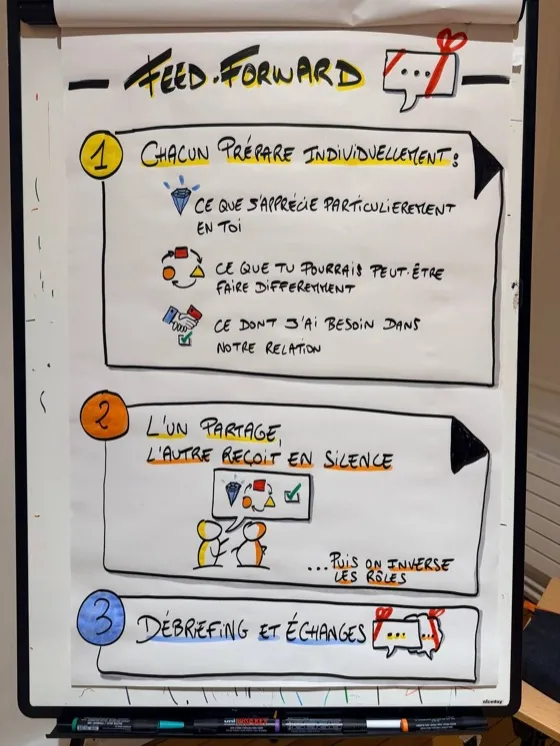 FEED-FORWARD
1 CHACUN PRÉPARE INDIVIDUELLEMENT :
CE QUE J'APPRÉCIE PARTICULIEREMENT
EN TOI
CE QUE TU POURRAIS PEUT-ÊTRE
FAIRE DIFFEREMMENT
CE DONT J'AI BESOIN DANS
NOTRE RELATION
2 L'UN PARTAGE,
L'AUTRE REÇOIT EN SILENCE
...PUIS ON INVERSE
LES RÔLES
3 DÉBRIEFING ET ÉCHANGES